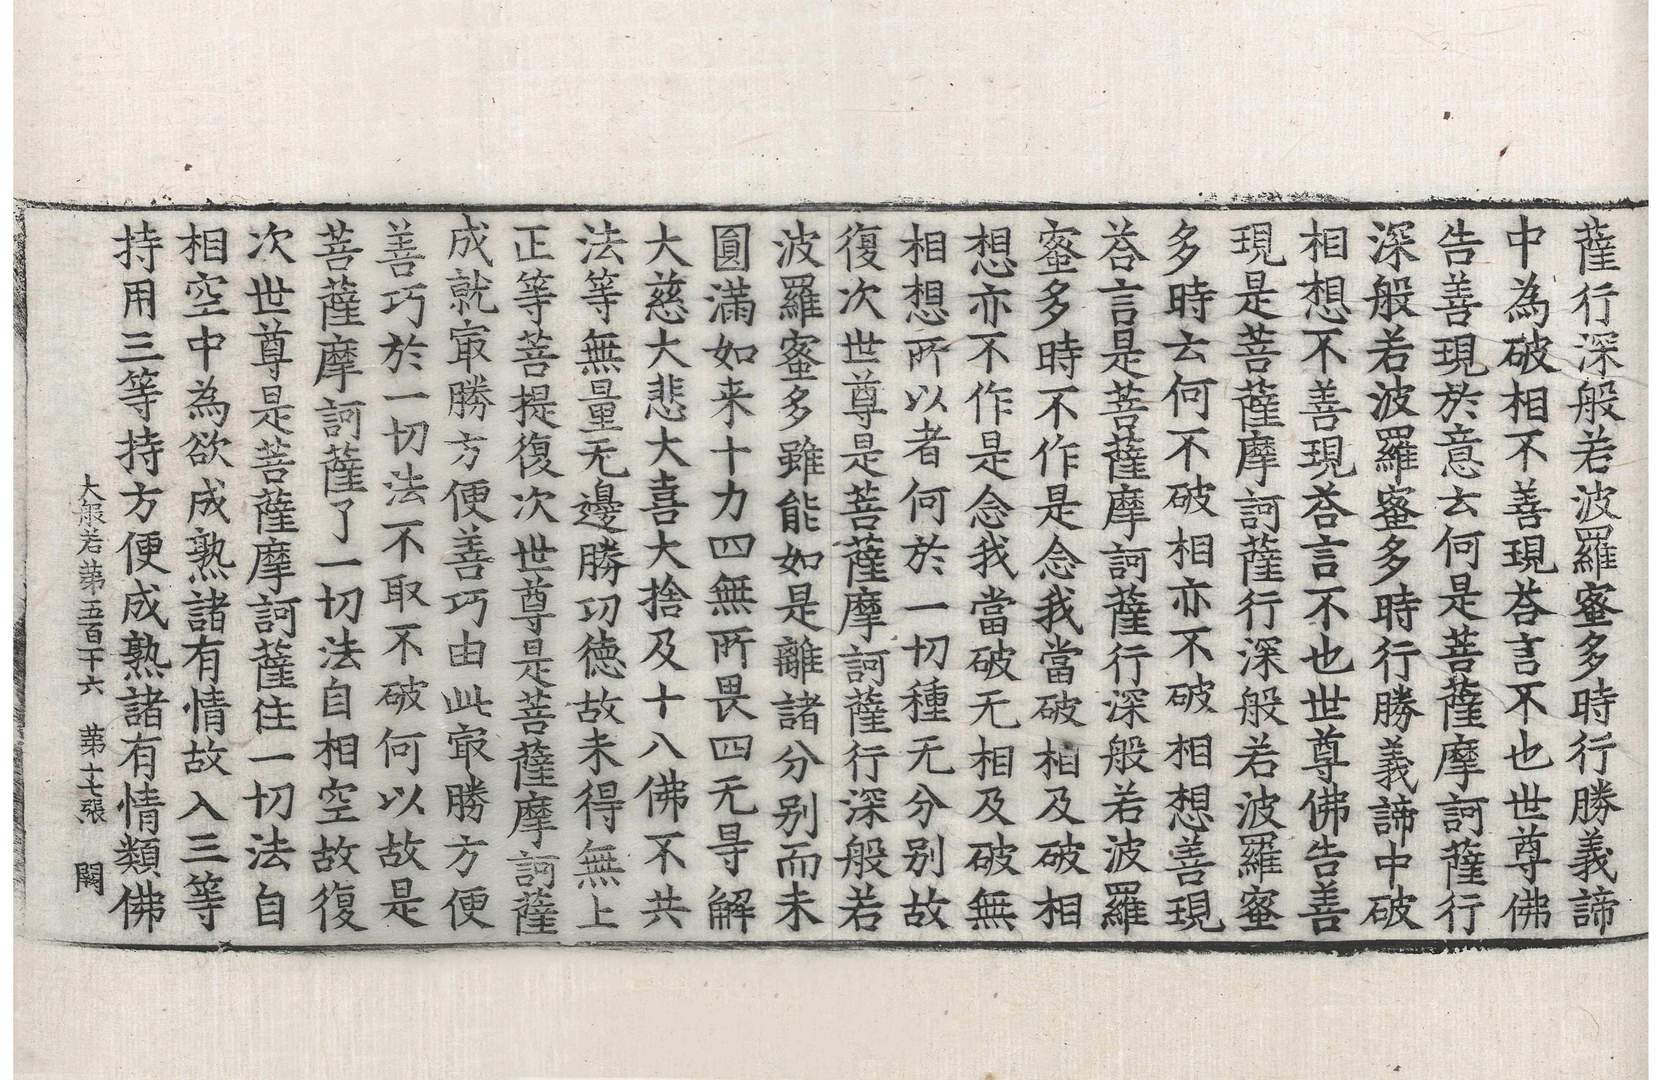 薩行深般若波羅蜜多時行勝義諦
中為破相不善現荅言不也世尊佛
告善現於意云何是菩薩摩訶薩行
深般若波羅蜜多時行勝義諦中破
相想不善現荅言不也世尊佛告善
現是菩薩摩訶薩行深般若波羅蜜
多時云何不破相亦不破相想善現
荅言是菩薩摩訶薩行深般若波羅
蜜多時不作是念我當破相及破相
想亦不作是念我當破无相及破無
相想所以者何於一切種无分别故
復次世尊是菩薩摩訶薩行深般若
波羅蜜多雖能如是離諸分别而未
圓滿如来十力四無所畏四无㝵解
大慈大悲大喜大捨及十八佛不共
法等無量无邊勝功德故未得無上
正等菩提復次世尊是菩薩摩訶薩
成就㝡勝方便善巧由此㝡勝方便
善巧於一切法不取不破何以故是
菩薩摩訶薩了一切法自相空故復
次世尊是菩薩摩訶薩住一切法自
相空中為欲成熟諸有情故入三等
持用三等持方便成熟諸有情類佛
大般若第五百十六 第十七張 闕